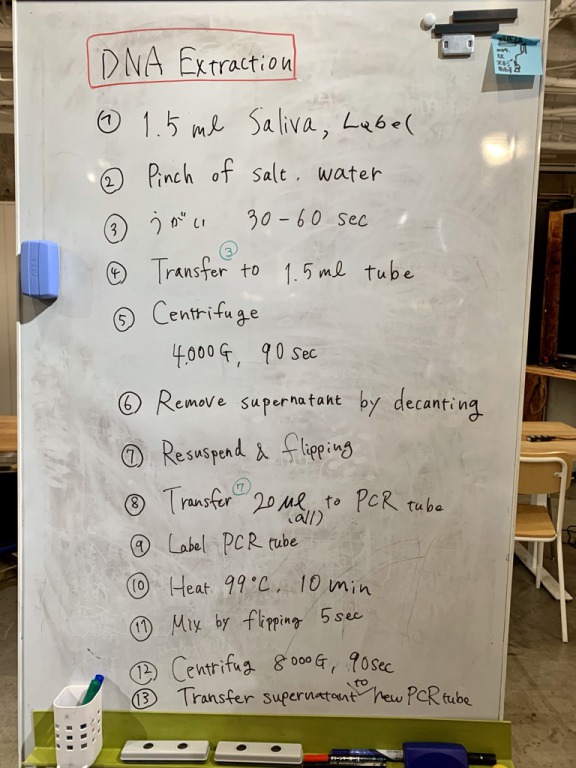 DNA Extraction
① 1.5 ml Saliva, Label
② Pinch of salt. water
③ うがい 30-60 sec
④ Transfer ③ to 1.5ml tube
⑤ Centrifuge
4,000G, 90sec
⑥ Remove supernatant by decanting
⑦ Resuspend & flipping
⑧ Transfer ⑦ 20μl (all) to PCR tube
⑨ Label PCR tube
⑩ Heat 99°C, 10 min
⑪ Mix by flipping 5sec
⑫ Centrifug 8000G, 90sec
⑬ Transfer supernatant to new PCR tube